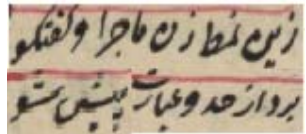 زین نمط زن ماجرا و گفتگو
بر دار حد و عبارت پیش شو